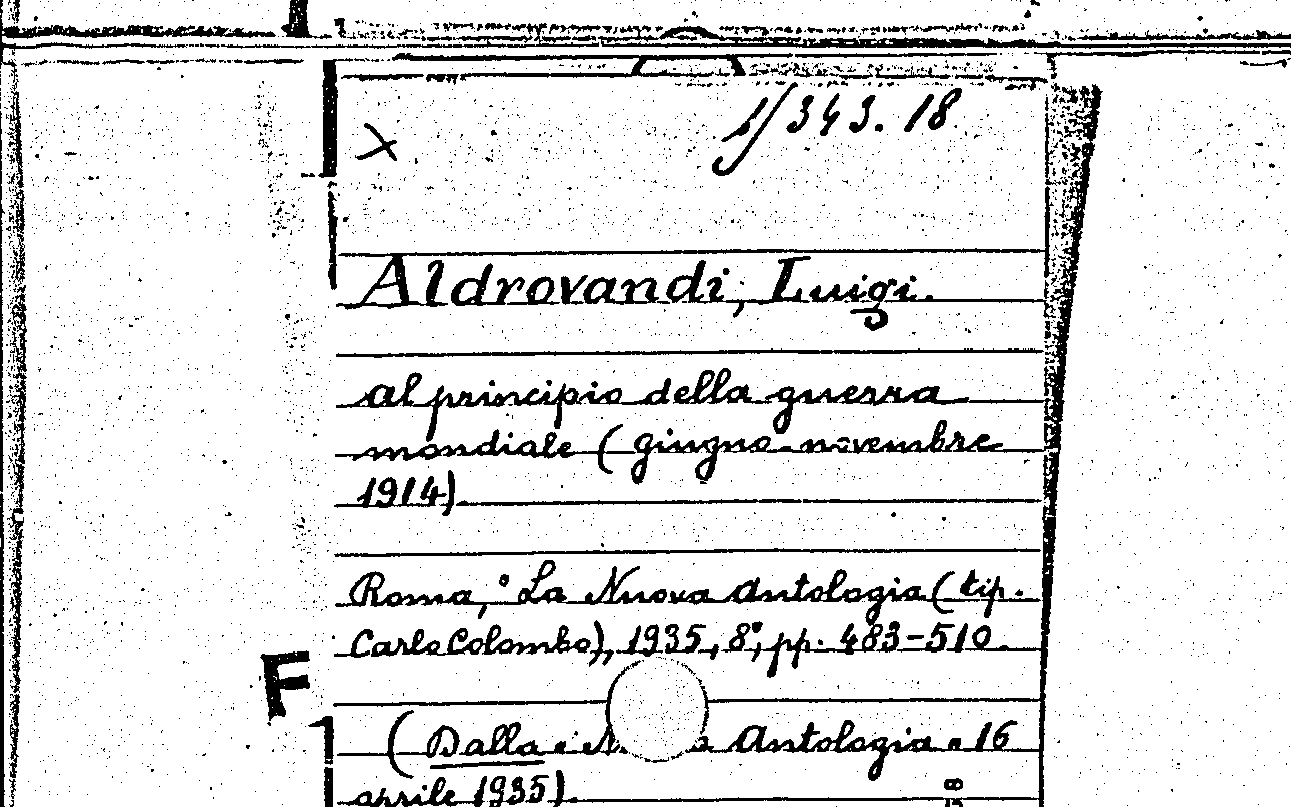 1/343.18
Aldrovandi, Luigi.
al principio della guerra
mondiale (giugno-novembre
1914).
Roma, "La Nuova Antologia (tip.
Carlo Colombo), 1935, 8°, pp. 483-510.
F
(Dalla Antologia" 16
aprile 1935).